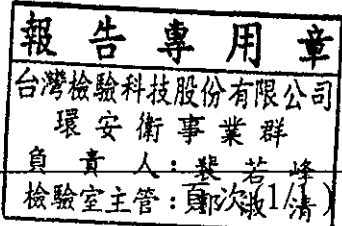 報告專用章
台灣檢驗科技股份有限公司
環安衛事業群
負責人：裴若峰
檢驗室主管：
頁次(1/1)